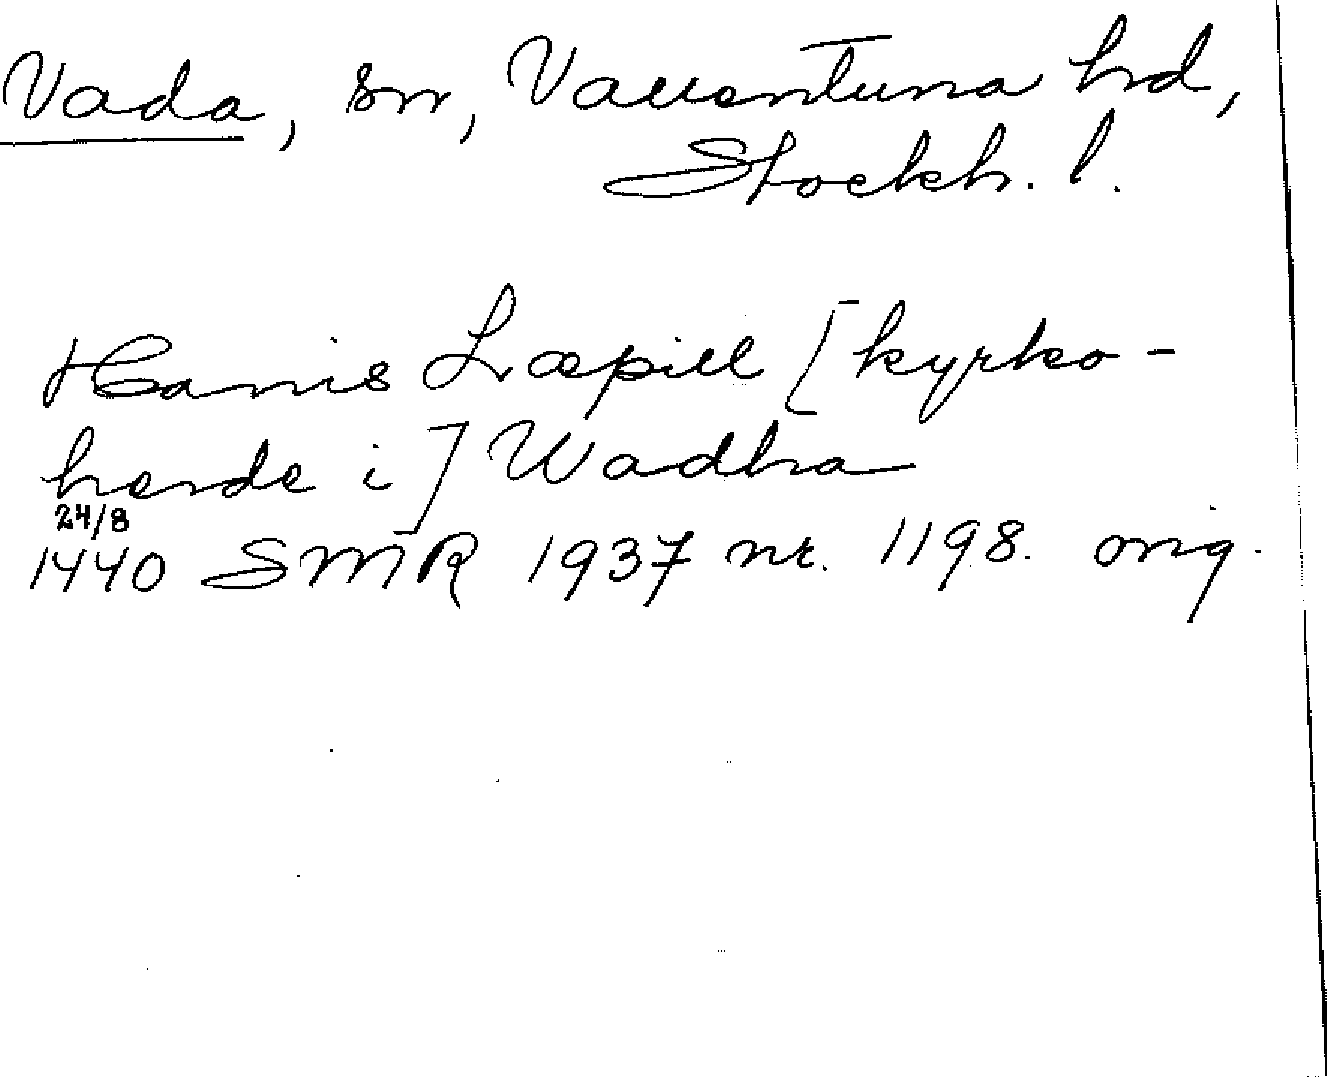 Vada, sn, Vallentuna hd,
Stockh. l.
Hanis Læpill [kyrko-
herde i] Wadha
24/8
1440 SMR 1937 nr. 1198. orig.